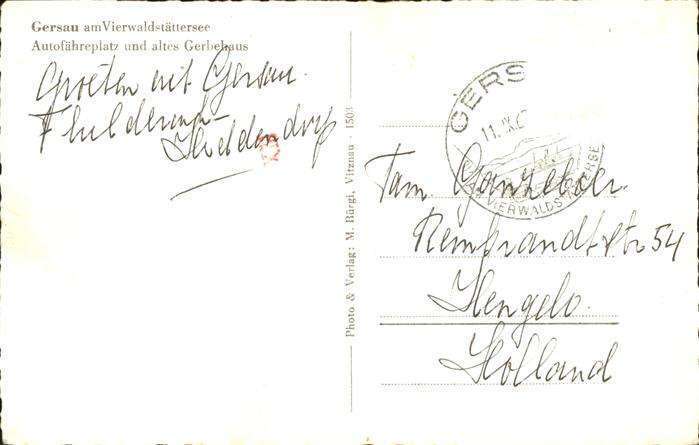 Gersau am Vierwaldstättersee
Autofähreplatz und altes Gerbehaus
Groeten uit Gersau.
Photo & Verlag: M. Bürgi, Vitznau - 1503
GERS
11.IX.
AM VIERWALDSTÄTTERSEE
Fam Ganzeboer.
Rembrandtstr 54
Hengelo.
Holland